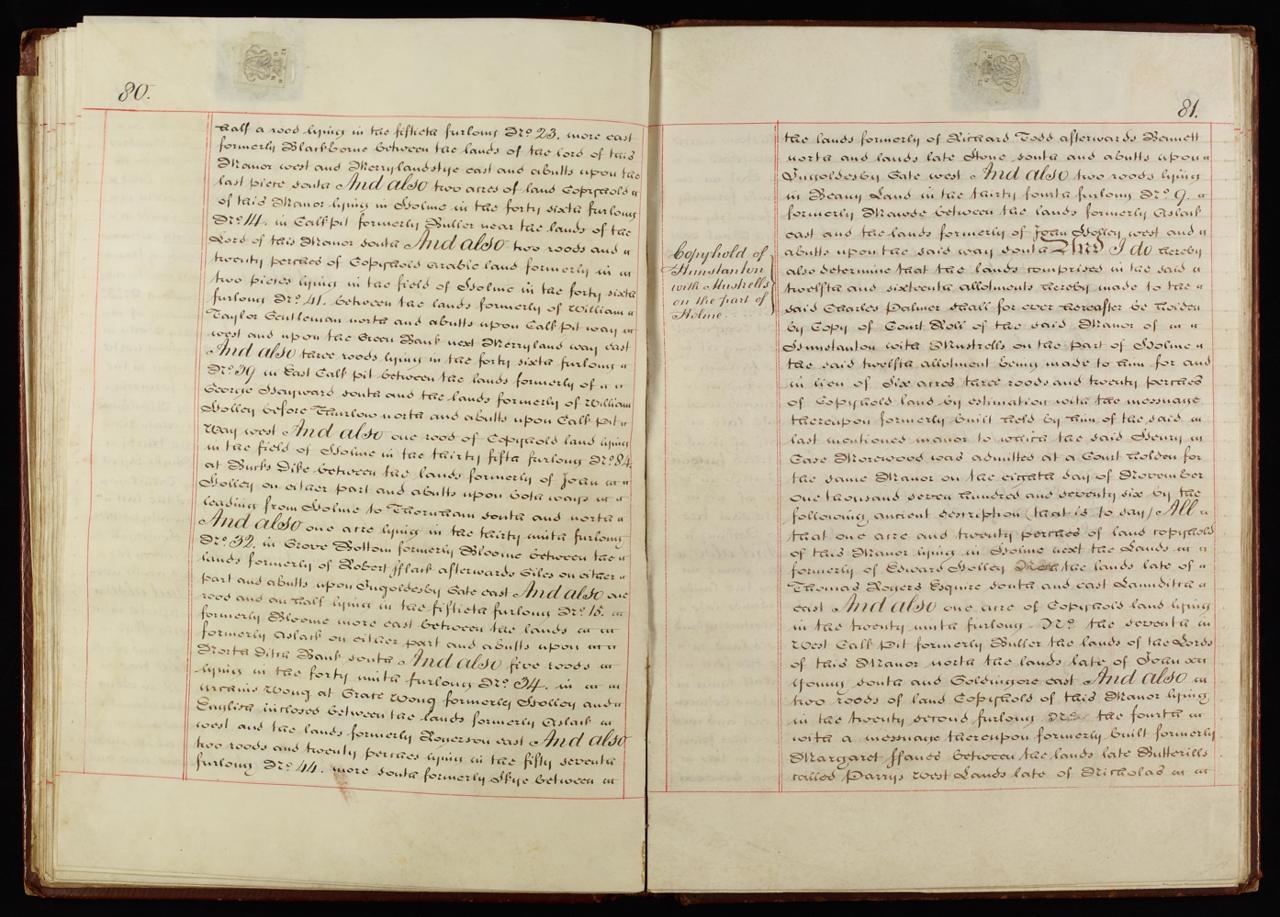 80.
half a rood lying in the fiftieth furlong No. 23. more east
formerly Blackborne between the lands of the lord of this
Manor west and Merrylandstye east and abutts upon the
last piece south And also two acres of land Copyhold
of this Manor lying in Holme in the forty sixth furlong
No. 14. in Calkpit formerly Buller near the lands of the
Lord of this Manor south And also two roods and
twenty perches of Copyhold arable land formerly in
two pieces lying in the field of Holme in the forty sixth
furlong No. 41. between the lands formerly of William
Taylor Gentleman north and abutts upon Calk pit way
west and upon the Green Bank next Merryland way east
And also three roods lying in the forty sixth furlong
No. 39 in East Calk pit between the lands formerly of
George Hayward south and the lands formerly of William
Holley before Thurlow north and abutts upon Calk pit
Way west And also one rood of Copyhold land lying
in the field of Holme in the thirty fifth furlong No. 84.
at Bucks Dike between the lands formerly of John
Holley on either part and abutts upon both ways
leading from Holme to Thornham south and north
And also one acre lying in the thirty ninth furlong
No. 32. in Grove Bottom formerly Bloome between the
lands formerly of Robert fflack afterwards Giles on either
part and abutts upon Ingoldesby Gate east And also one
rood and an half lying in the fiftieth furlong No. 15.
formerly Bloome more east between the lands
formerly Aslack on either part and abutts upon
North Ditch Bank south And also five roods
lying in the forty ninth furlong No. 34. in
Wong at Grate Wong formerly Holley and
English inclosed between the lands formerly Aslack
west and the lands formerly Rogerson east And also
two roods and twenty perches lying in the fifty seventh
furlong No. 44. more south formerly Skye between
81.
the lands formerly of Richard Todd afterwards Bennett
north and lands late Stone south and abutts upon
Ingoldesby Gate west And also two roods lying
in Beany Land in the thirty fourth furlong No. 9.
formerly Mawde between the lands formerly Aslack
east and the lands formerly of John Holley west and
abutts upon the said way south And I do hereby
Copyhold of
Hunstanton
with Mustrells
on the part of
Holme
also determine that the lands comprised in the said
twelfth and sixteenth allotments hereby made to the
said Charles Palmer shall for ever hereafter be holden
by Copy of Court Roll of the said Manor of
Hunstanton with Mustrells on the part of Holme
the said twelfth allotment being made to him for and
in lieu of Six acres three roods and twenty perches
of Copyhold land by estimation with the messuage
thereupon formerly built held by him of the said
last mentioned manor to which the said Henry
Case Morewood was admitted at a Court holden for
the same Manor on the eighth day of November
One thousand seven hundred and seventy six by the
following ancient description (that is to say) All
that one acre and twenty perches of land copyhold
of this Manor lying in Holme next the Lands
formerly of Edward Holley the lands late of
Thomas Rogers Esquire south and east Lamditch
east And also one acre of Copyhold land lying
in the twenty ninth furlong No. the seventh in
West Calk Pit formerly Buller the lands of the Lords
of this Manor north the lands late of John
Young south and Goldingore east And also
two roods of land Copyhold of this Manor lying
in the twenty second furlong No. the fourth
with a messuage thereupon formerly built formerly
Margaret ffanes between the lands late Butterills
called Parrys West Lands late of Nicholas